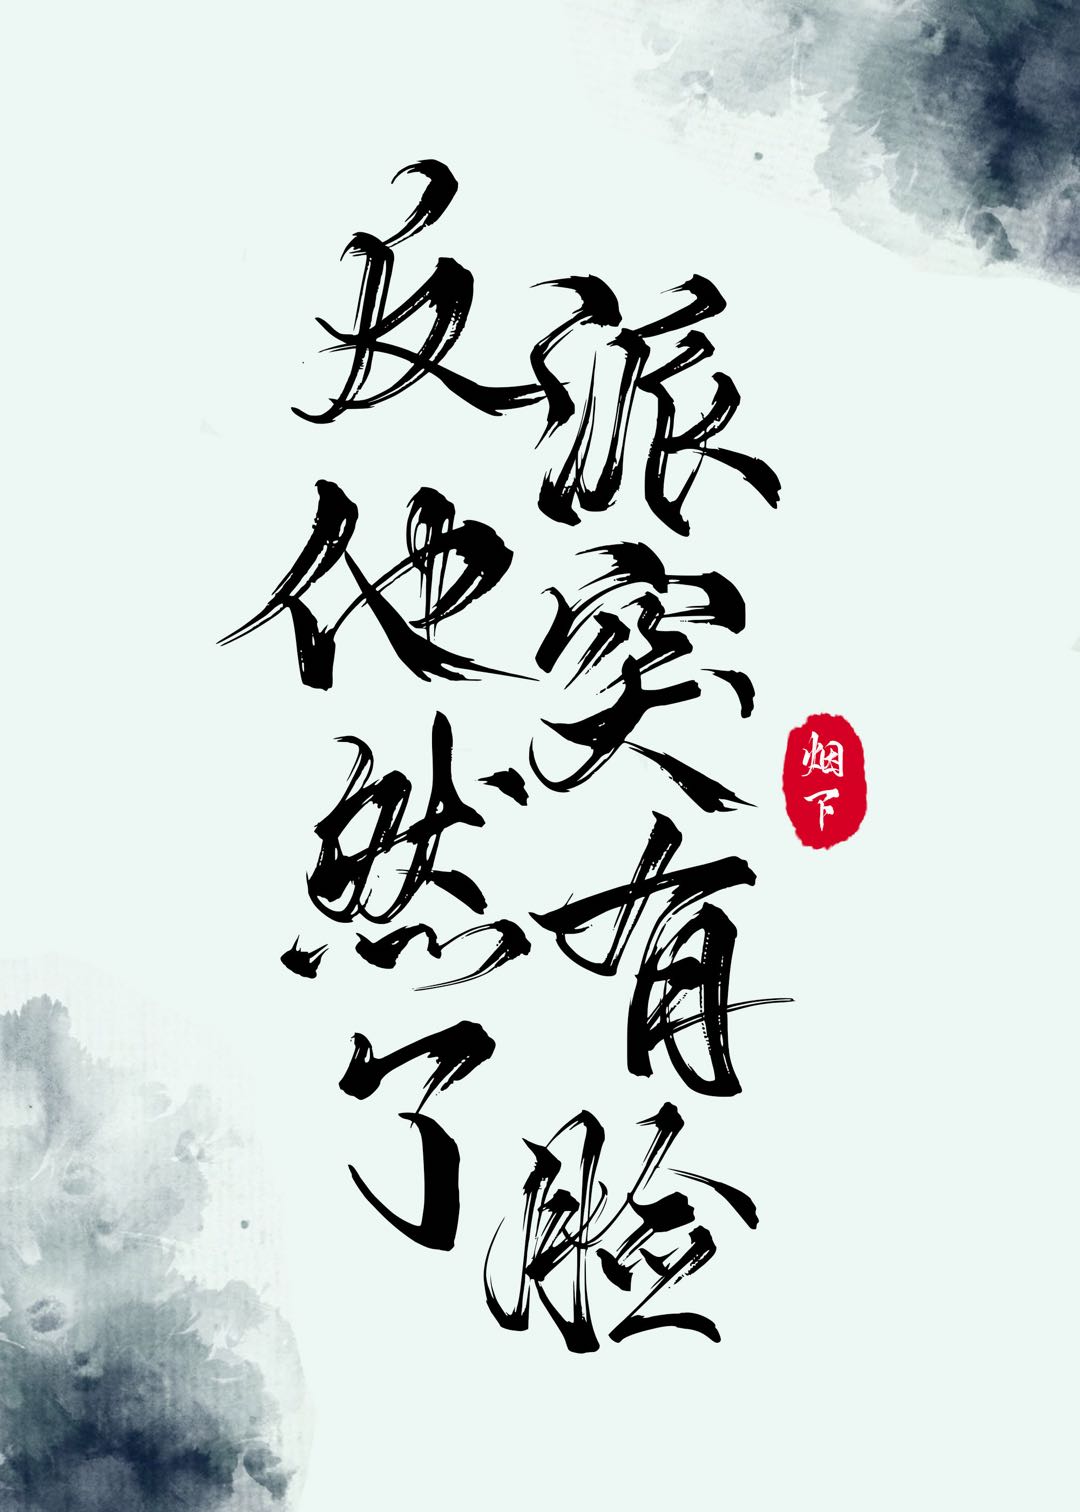 反派
他突
然有
了脸
烟下